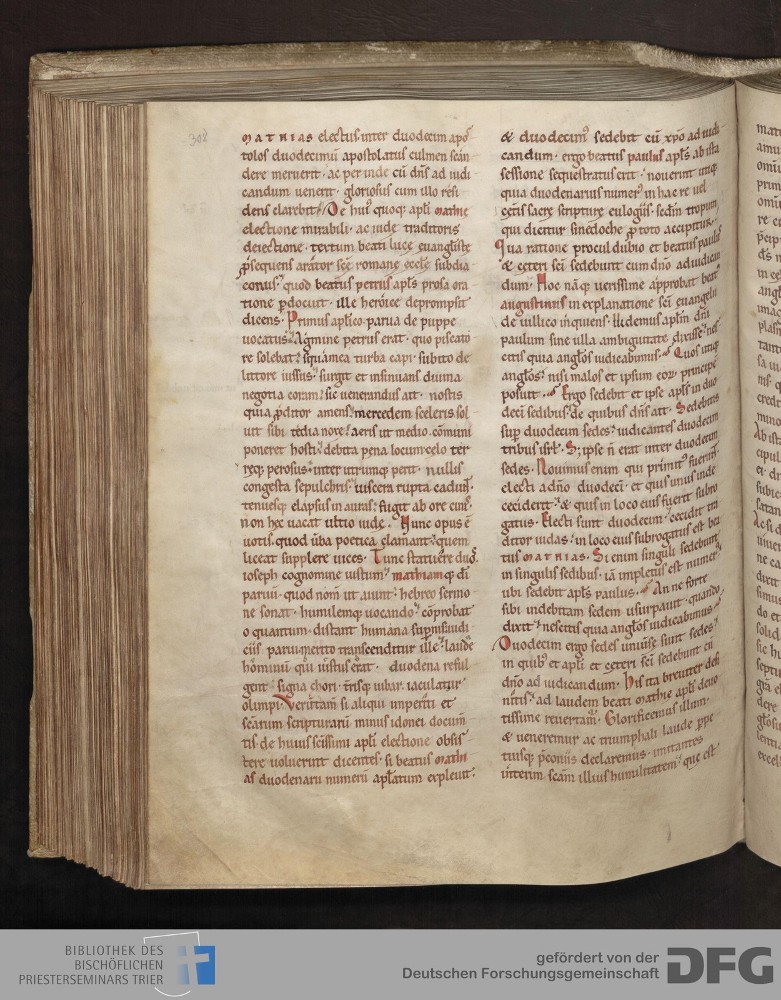 308
MATHIAS electus inter duodecim apo
tolos duodecimū apostolatus culmen scan
dere meruerit · ac per inde cū dn̄s ad iudi
candum uenerit · gloriosus cum illo resi
dens clarebit · De hui' quoq; apl̄i mathie
electione mirabili · ac iude traditoris
deiectione · tertum beati luce euangliste
ꝓsequens arator scē romane eccl̄e subdia
conus · quod beatus petrus apl̄s prosa ora
tione ꝑdocuit · ille heroice deprompsit
dicens · Primus apl̄ico · parua de puppe
uocatus · Agmine petrus erat · quo piscato
re solebat · squamea turba capi · subito de
littore iussus · surgit et insinuans diuina
negotia coram · sic uenerandus ait · nostis
quia ꝓditor amens · mercedem sceleris sol
uit sibi · tedia noxe · aeris ut medio · cōmuni
poneret hosti · debita pena locum · celo ter
req; perosus · inter utrumq; perit · nullis
congesta sepulchris · uiscera rupta cadunt ·
tenuesq; elapsus in auras · fugit ab ore cinis ·
non hec uacat ultio iude · Nunc opus ē
uotis · quod ūba poetica clamant · quem
liceat supplere uices · Tunc statuere duo ·
ioseph cognomine iustum · mathiamq; di
paruū · quod nom̄ ut aiunt · hebreo sermo
ne sonat · humilemq; uocando · cōprobat
o quantum · distant humana supnis iudi
ciis · parui merito transcenditur ille · laude
hominū qui iustus erat · duodena reful
gent · signa chori · trisq; iubar iaculatur
olimpi · Verūtam̄ si aliqui imperiti et
scārum scripturarū minus idonei docum̄
tis de huius scissimi apl̄i electione obsis
tere uoluerint dicentes · si beatus mathi
as duodenarū numerū apl̄atum expleuit ·
& duodecim' sedebit cū xp̄o ad iudi
candum · ergo beatus paulus apl̄s ab ista
sessione sequestratus erit · nouerint utiq;
quia duodenarius numer' in hac re uel
cetis sacre scripture eulogiis · sedm̄ tropum
qui dicitur sinodoche ꝑ toto accipitur ·
Qua ratione procul dubio et beatus paulus
& ceteri sci sedebunt cum dn̄o ad iudican
dum · Hoc nāq; uerissime approbat beat'
augustinus in explanatione sci euangelii
de uillico inquiens · Audemus apl̄m dn̄i
paulum sine ulla ambiguitate dixisse · nes
citis quia angl̄os iudicabimus · Quos utiq;
angl̄os · nisi malos et ipsum eor̄ principē
posuit · Ergo sedebit et ipse apl̄s in duo
decī sedibus · de quibus dn̄s ait · Sedebitis
sup duodecim sedes · iudicantes duodecim
tribus isrl̄ · S; ipse n̄ erit inter duodecim
sedes · Nouimus enim qui primit' fuerint
electi a dn̄o duodecī · et quis unus inde
ceciderit · & quis in loco eius fuerit subro
gatus · Electi sunt duodecim · cecidit tra
ditor iudas · in loco eius subrogatus est bea
tus MATHIAS · Si enim singuli sedebunt
in singulis sedibus · iā impletus est numer'
ubi sedebit apl̄s paulus · An ne forte
sibi indebitam sedem usurpauit · quando
dixit · nescitis quia angl̄os iudicabimus ·
Duodecim ergo sedes uniuse sunt sedes ·
in quib' et apl̄i et ceteri sci sedebunt cū
dn̄o ad iudicandum · His ita breuiter def
nitis · ad laudem beati mathie apl̄i deuo
tissime reuertam̄ · Glorificemus illum ·
& ueneremur ac triumphali laude ꝓpe
tuisq; p̄coniis declaremus · imitantes
interim scām illius humilitatem · que est
BIBLIOTHEK DES
BISCHÖFLICHEN
PRIESTERSEMINARS TRIER
gefördert von der
Deutschen Forschungsgemeinschaft
DFG